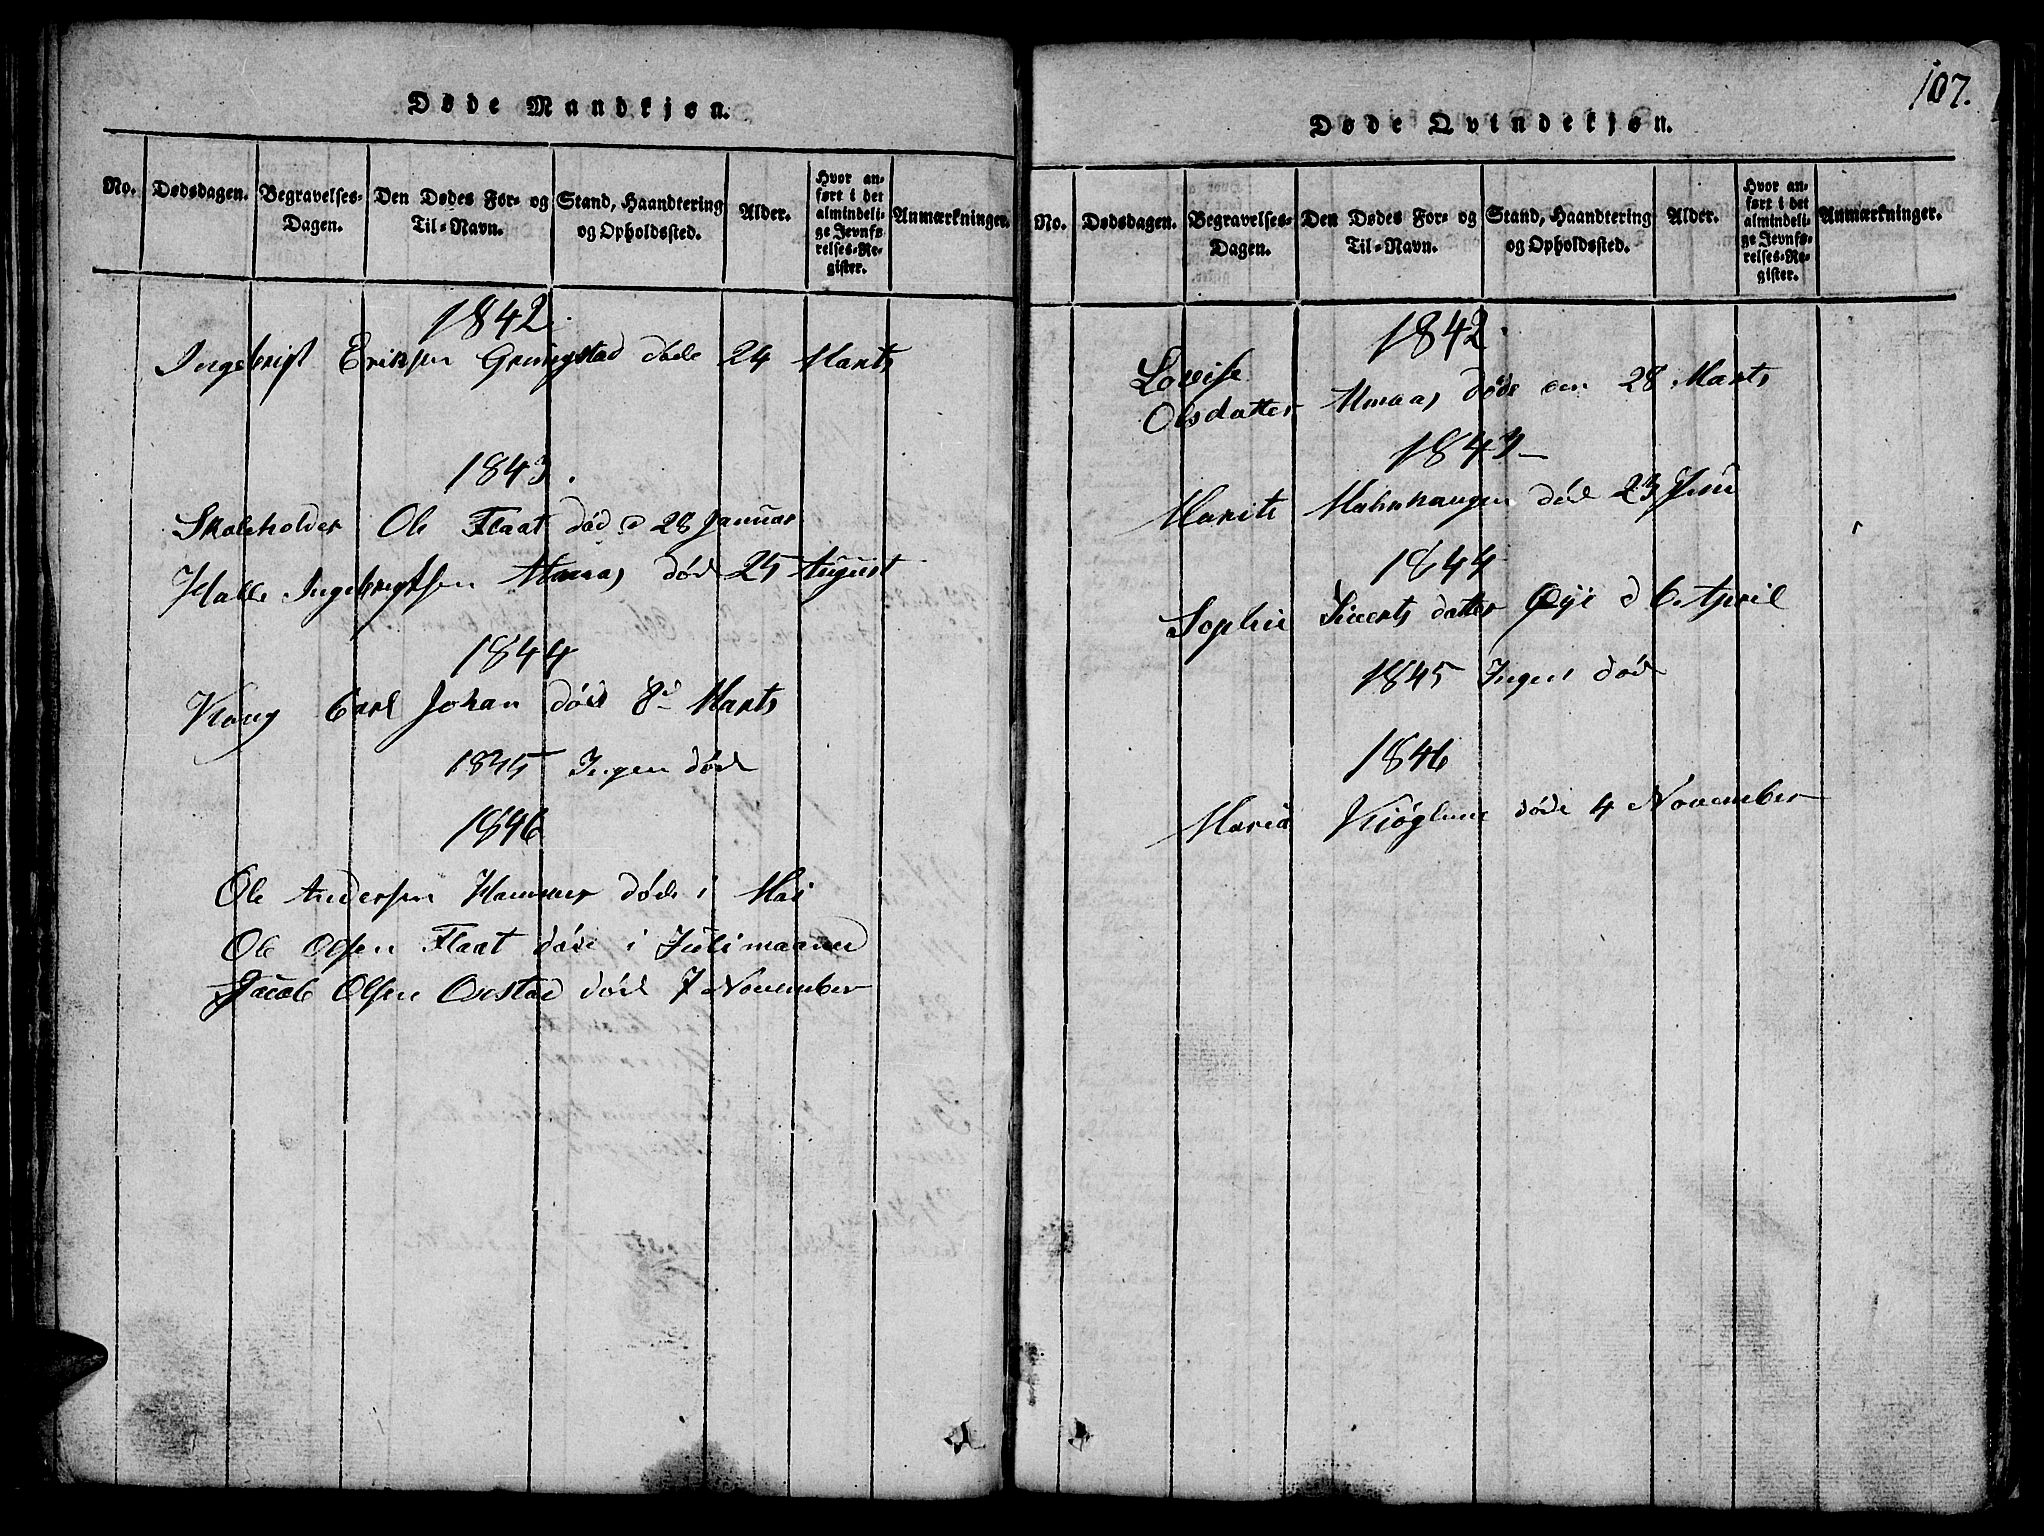 Døde Mandkjøn.
No. Dødsdagen. Begravelses-Dagen. Den Dødes For- og Til-Navn. Stand, Haandtering og Opholdssted. Alder. Hvor anført i det almindelige Jevnførelses-Register. Anmærkninger.
1842.
Ingebrigt Eriksen Gringstad døde 24 Marts
1843.
Skoleholder Ole Flaat død d 28 Januar
Halle Ingebrigtsen Almaas død 25 August
1844
Kong Carl Johan død 8d Marts
1845 Ingen død
1846
Ole Andersen Hammer døde i Mai
Ole Olsen Flaat døde i Juli maaned
Jacob Olsen Overstad død 7 November
107.
Døde Qvindekjøn.
No. Dødsdagen. Begravelses-Dagen. Den Dødes For- og Til-Navn. Stand, Haandtering og Opholdssted. Alder. Hvor anført i det almindelige Jevnførelses-Register. Anmærkninger.
1842.
Lovise
Olsdatter Almaas døde den 28 Marts
1843
Marit død 23 Juni
1844
Sophie Siverts datter Øye d 6 April
1845 Ingen død
1846
Maria døde 4 November